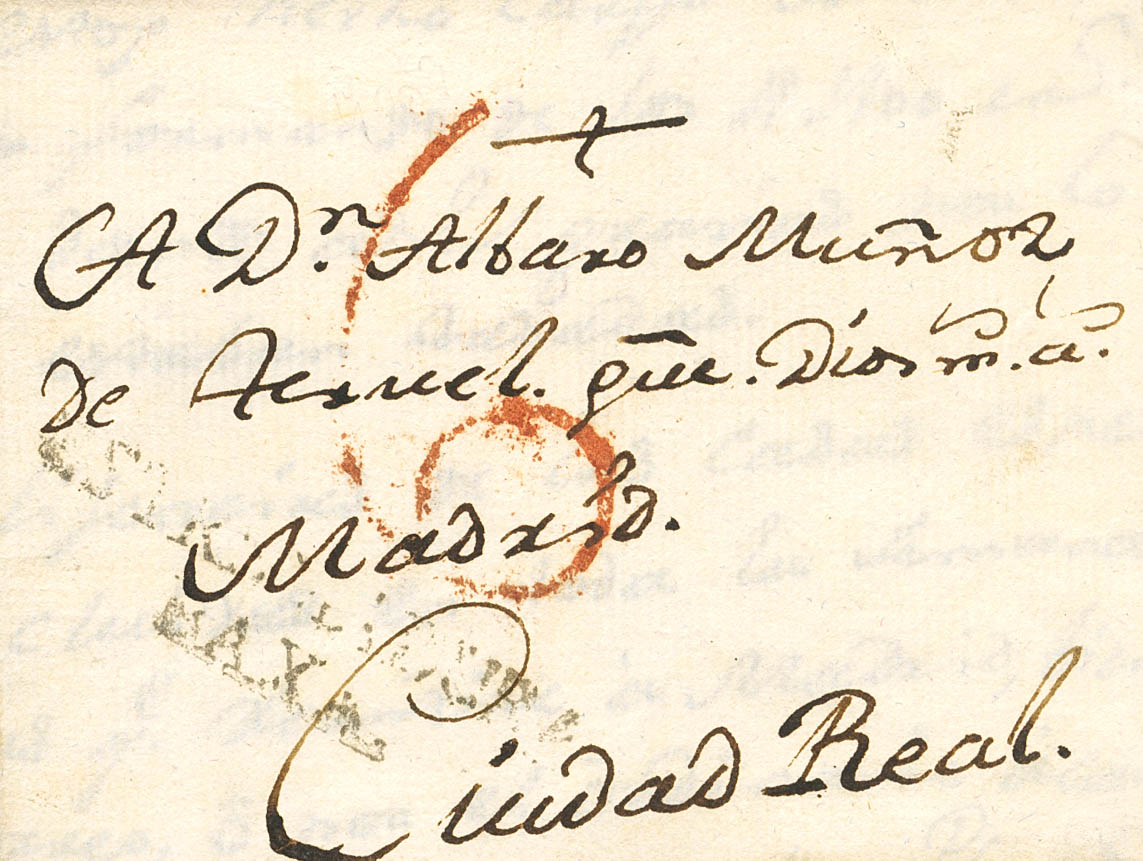 +
A D.n Albaro Muñoz
de Teruel. gūe. Dios m.s a.s
Madrid.
Ciudad Real.